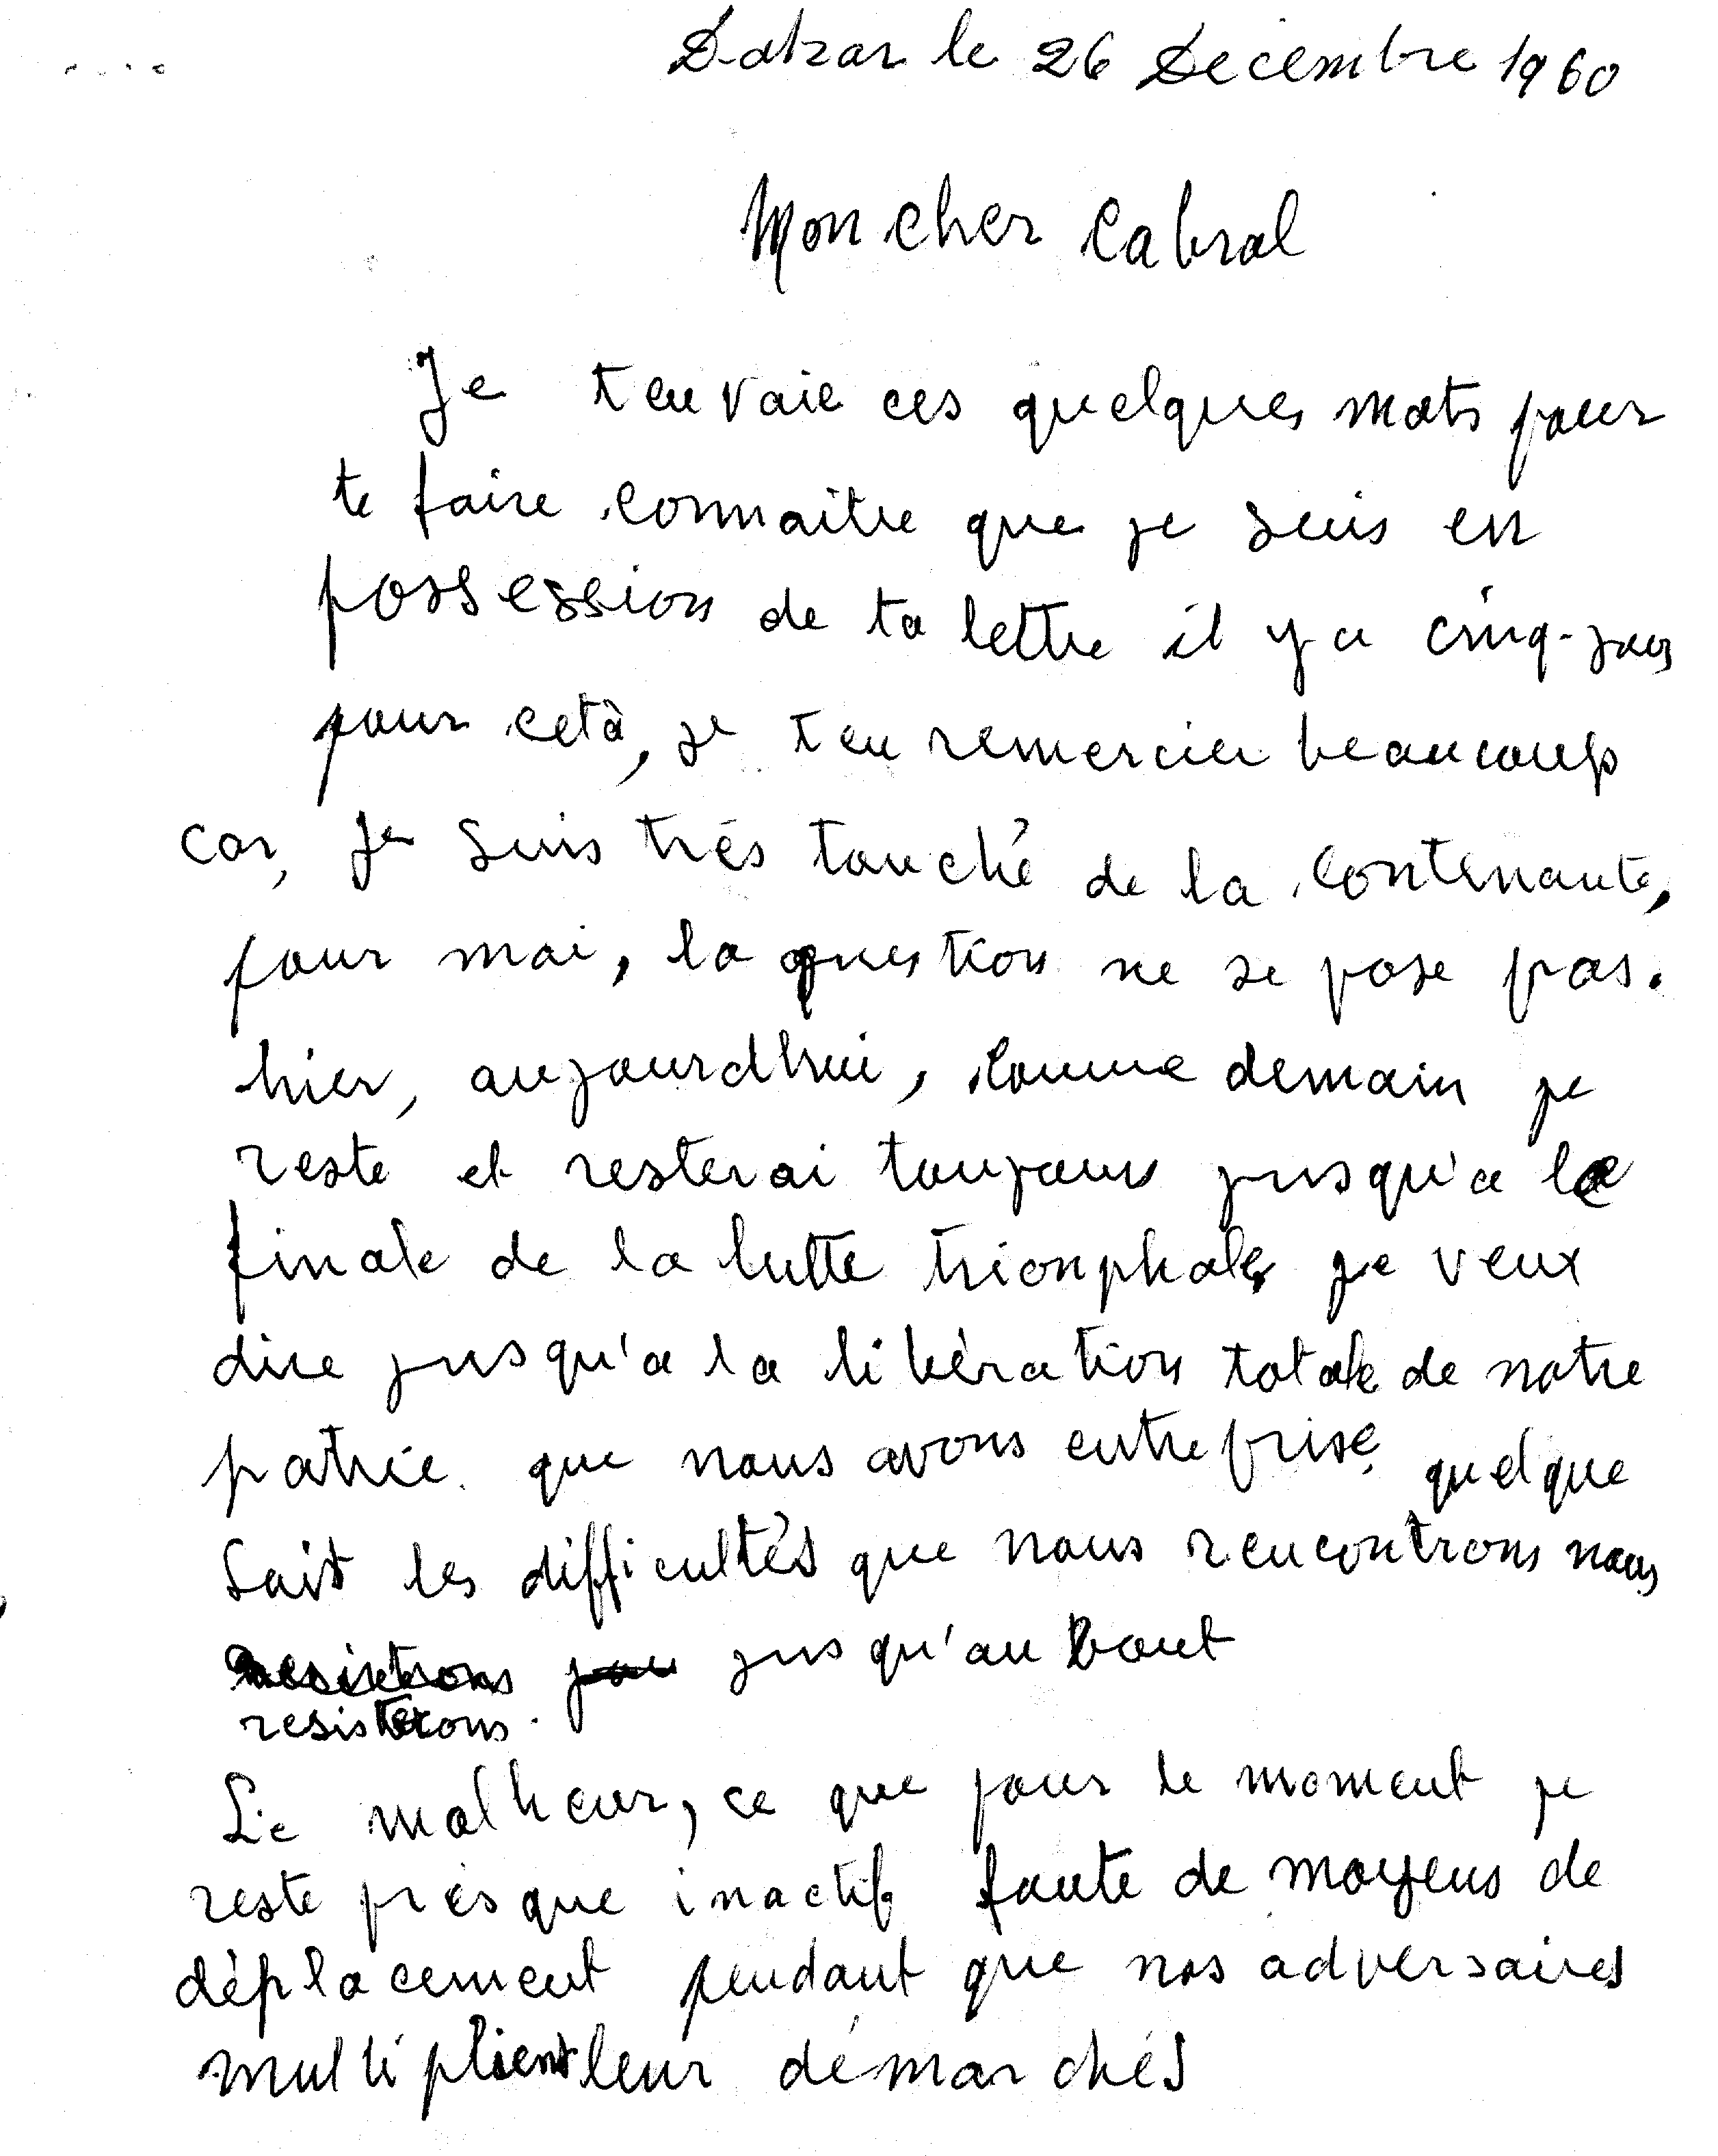 Dakar le 26 Decembre 1960
Mon cher Cabral
Je t'envoie ces quelques mots pour
te faire connaitre que je suis en
possession de ta lettre il y a cinq-jours
pour celà, je t'en remercier beaucoup
car, je suis très touché de la contenante,
pour moi, la question ne se pose pas.
hier, aujourdhui, comme demain je
reste et resterai toujours jusqu'a la
finale de la lutte trionphale, je veux
dire jusqu'a la libération totale de notre
patrie que nous avons entreprise, quelque
soit les difficultés que nous rencontrons nous
jusqu'au bout
resisterons.
Le malheur, ce que pour le moment je
reste presque inactif faute de moyens de
déplacement pendant que nos adversaires
multiplient leur démarchés